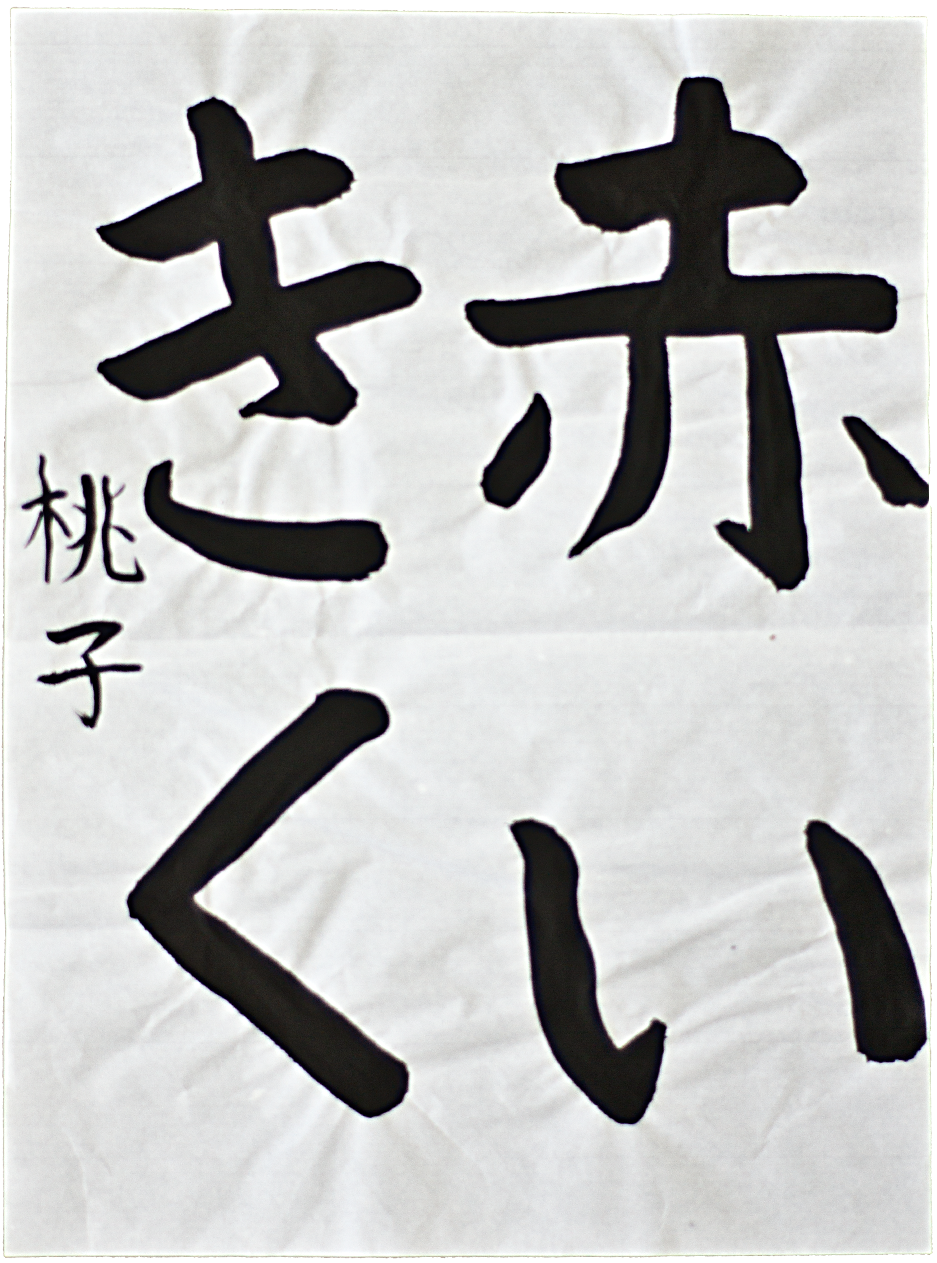 赤い
きく
桃子